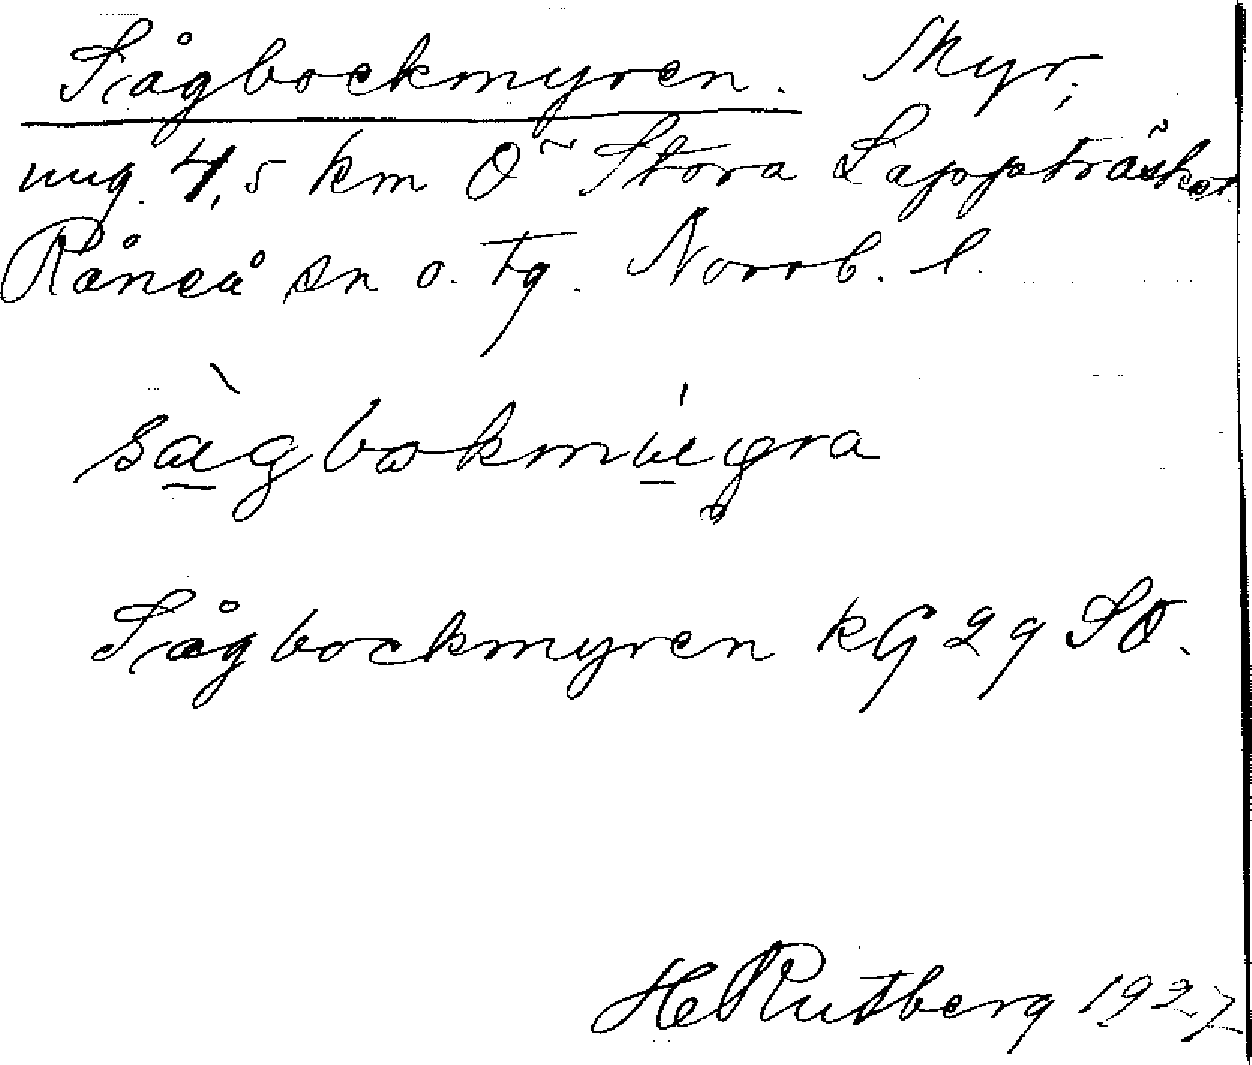 Sågbockmyren. Myr,
ung. 4,5 km Ö~ Stora Lappträsket
Råneå sn o. tg. Norrb. l.
Sågbockmyren kG 29 SO.
H Rutberg 1927